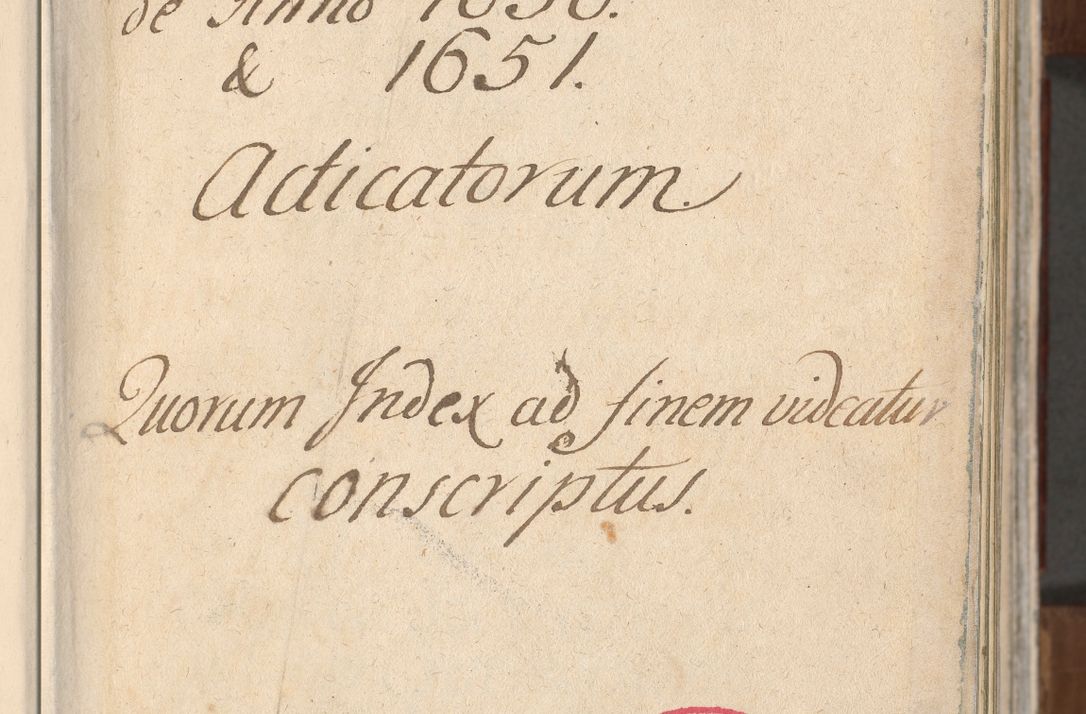 de Anno 1650.
& 1651.
Acticatorum.
Quorum Index ad finem videatur
conscriptus.